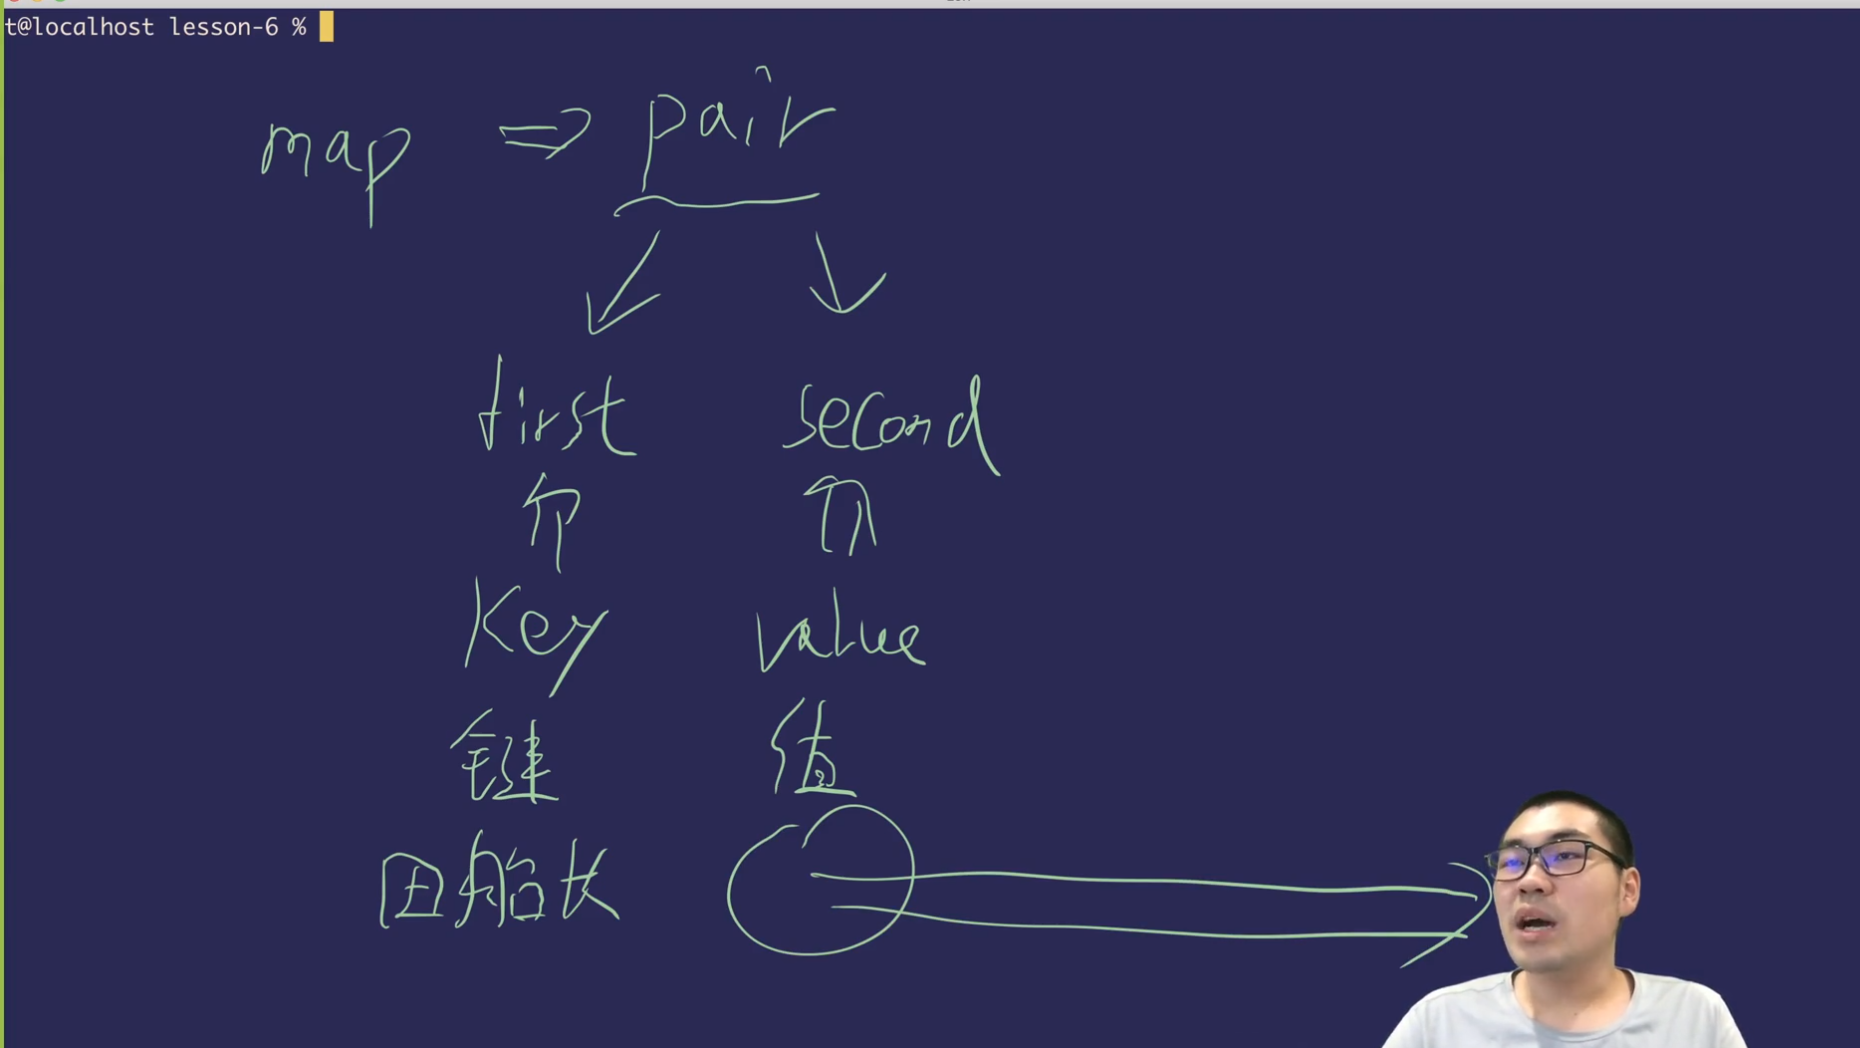 t@localhost lesson-6 %
map ⇒ pair
first second
Key value
键 值
田船长